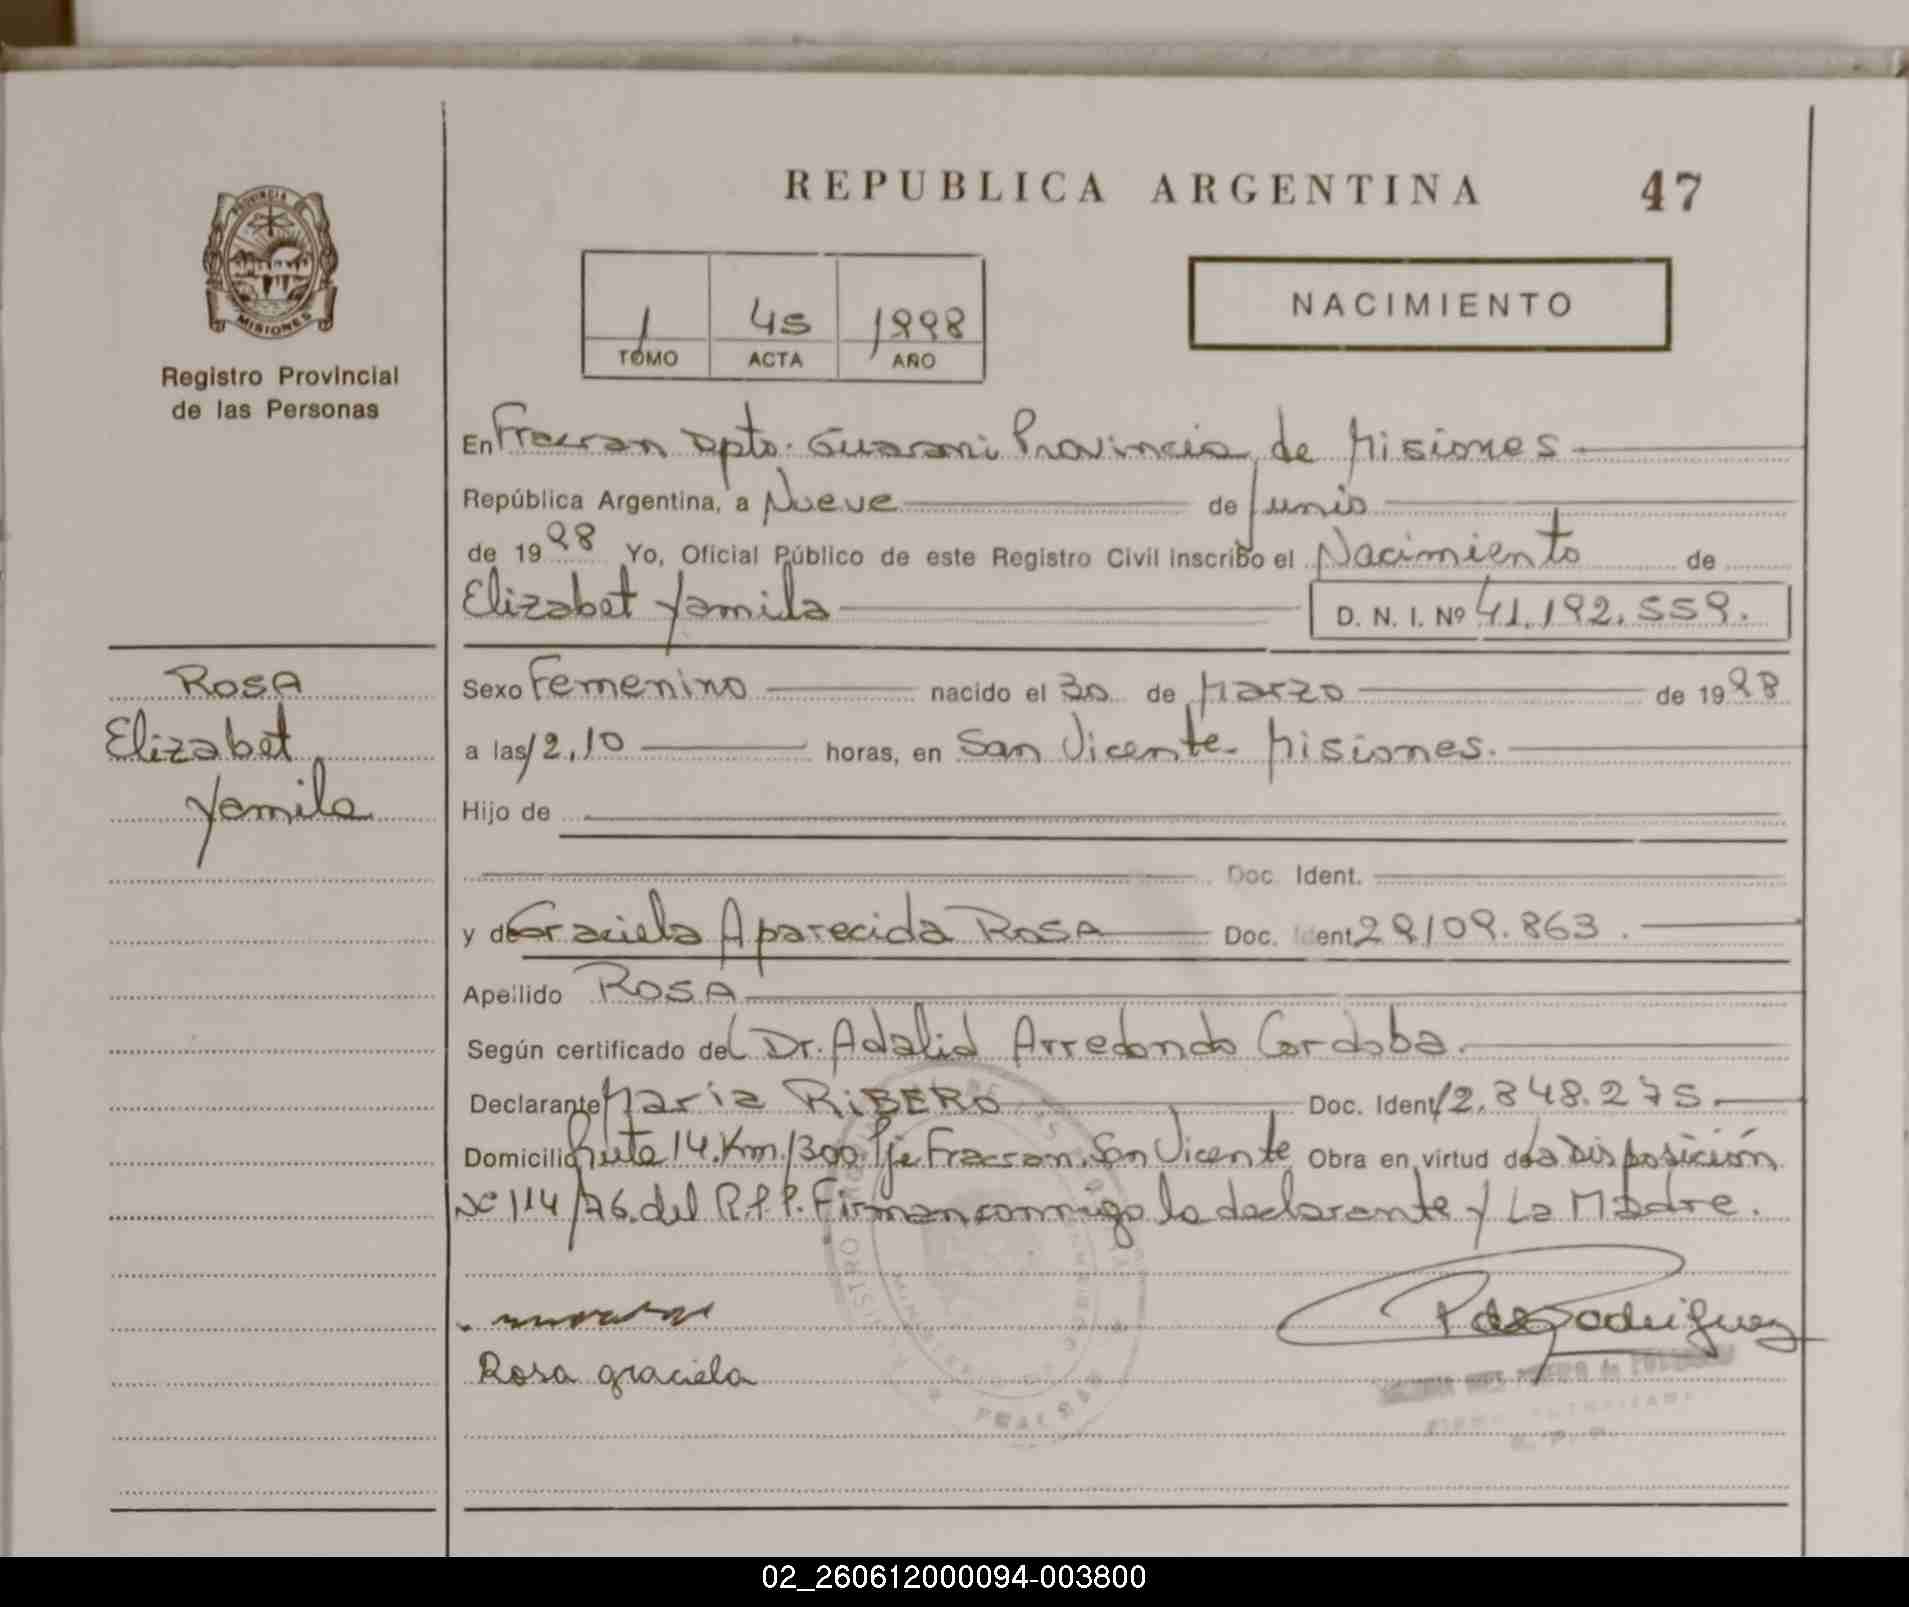 REPUBLICA ARGENTINA 47
PROVINCIA DE
MISIONES
Registro Provincial
de las Personas
1 45 1998
TOMO ACTA AÑO
NACIMIENTO
En Fracran Dpto. Guarani Provincia de Misiones
República Argentina, a Nueve de Junio
de 1998 Yo, Oficial Público de este Registro Civil inscribo el Nacimiento de
Elizabet Yamila D. N. I. Nº 41.192.559.
ROSA
Elizabet
Yamila
Sexo Femenino nacido el 30 de Marzo de 1998
a las 12,10 horas, en San Vicente - Misiones.
Hijo de
Doc. Ident.
y de Graciela Aparecida ROSA Doc. Ident 29.109.863.
Apellido ROSA
Según certificado del Dr. Adalid Arredondo Cordoba.
Declarante Maria RiBERO Doc. Ident 12.848.275.
Domicilio Ruta 14. Km. 1300 Pje Fracran. San Vicente Obra en virtud de la Disposición
Nº 114/76. del R.P.P. Firman conmigo la declarante y La Madre.
Rosa graciela
P de Rodriguez
02_260612000094-003800